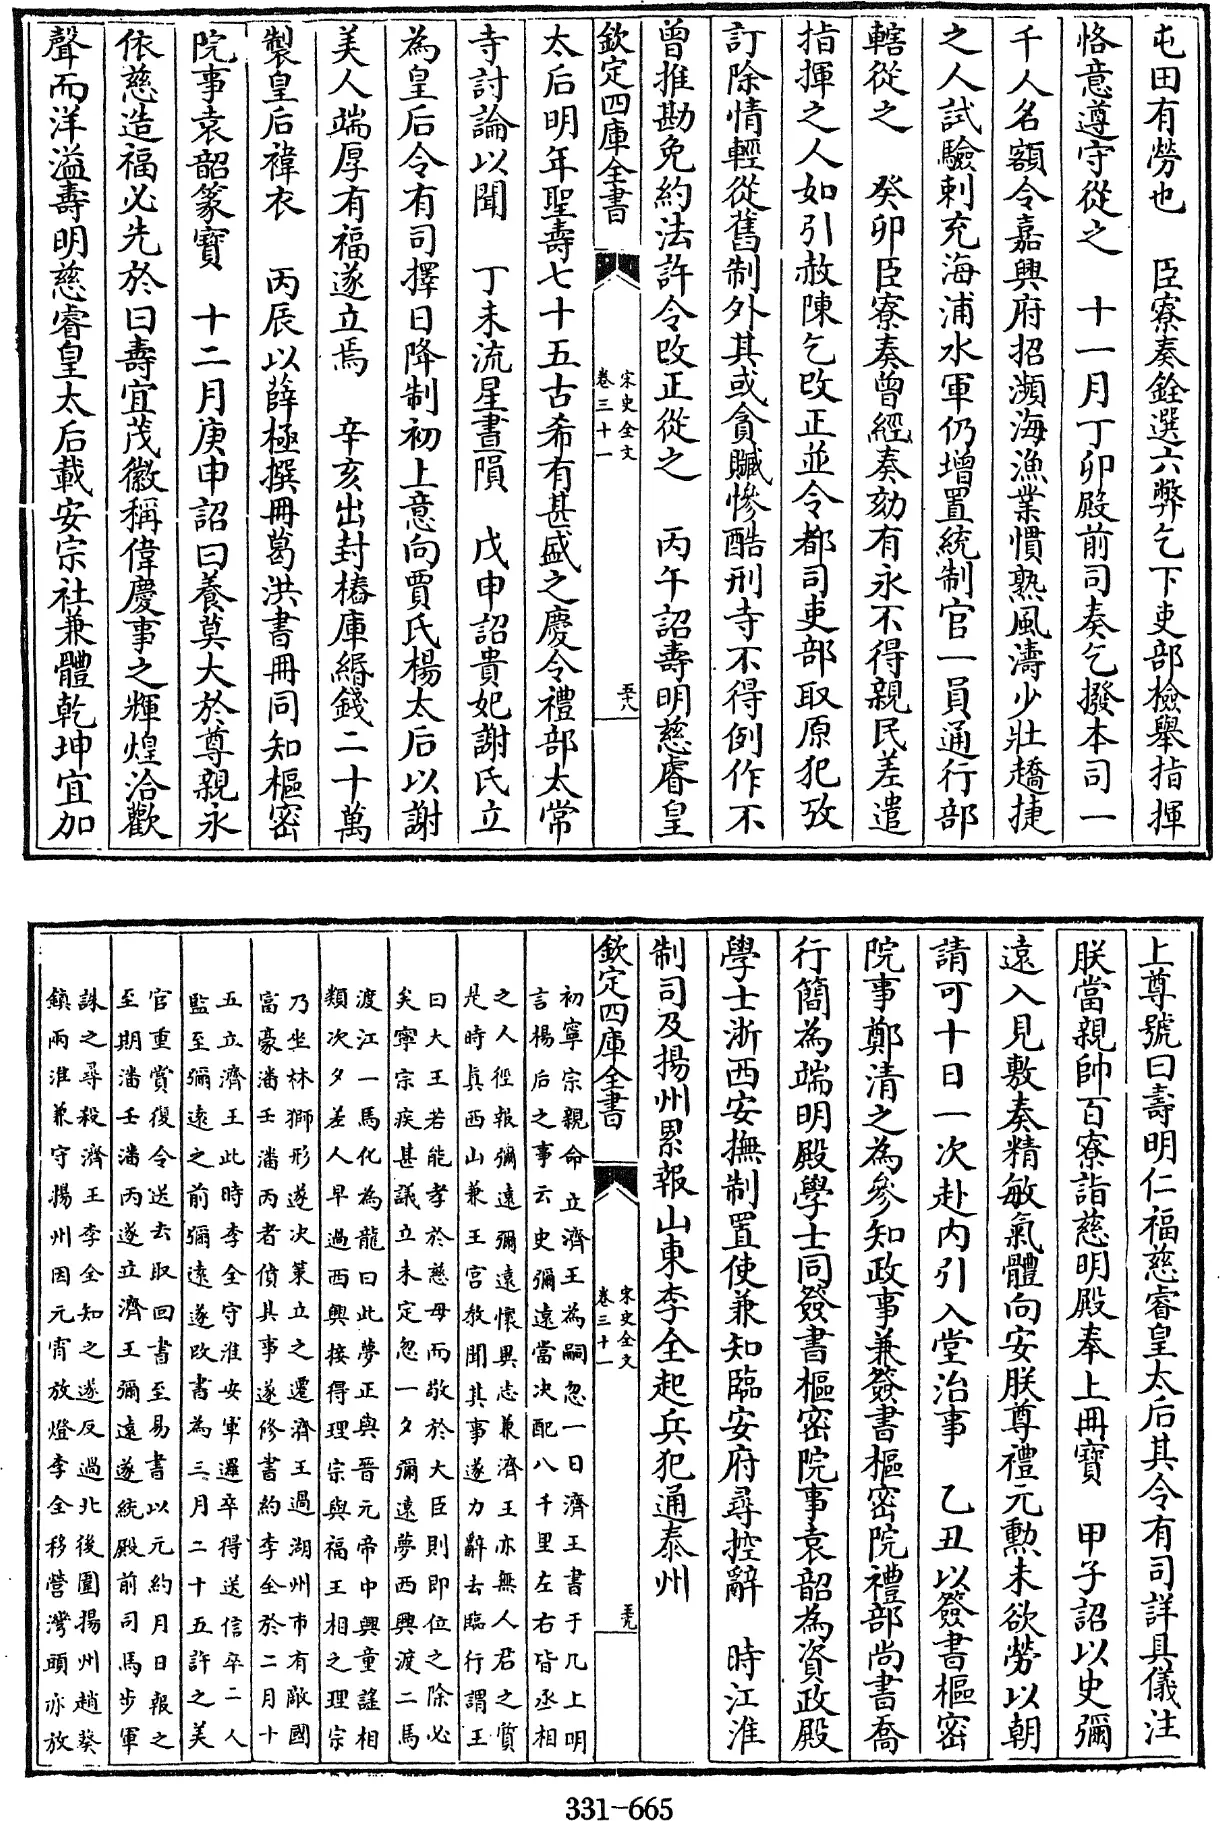 屯田有勞也　臣寮奏銓選六弊乞下吏部檢舉指揮
恪意遵守從之　十一月丁卯殿前司奏乞撥本司一
千人名額令嘉興府招瀕海漁業慣熟風濤少壯趫捷
之人試驗刺充海浦水軍仍增置統制官一員通行部
轄從之　癸卯臣寮奏曾經奏劾有永不得親民差遣
指揮之人如引赦陳乞改正並令都司吏部取原犯攷
訂除情輕從舊制外其或貪贓慘酷刑寺不得例作不
曾推勘免約法許令改正從之　丙午詔壽明慈睿皇
欽定四庫全書
宋史全文
卷三十一
五十八
太后明年聖壽七十五古希有甚盛之慶令禮部太常
寺討論以聞　丁未流星晝隕　戊申詔貴妃謝氏立
為皇后令有司擇日降制初上意向賈氏楊太后以謝
美人端厚有福遂立焉　辛亥出封樁庫緡錢二十萬
製皇后褘衣　丙辰以薛極撰冊葛洪書冊同知樞密
院事袁韶篆寶　十二月庚申詔曰養莫大於尊親永
依慈造福必先於曰壽宜茂徽稱偉慶事之輝煌洽歡
聲而洋溢壽明慈睿皇太后載安宗社兼體乾坤宜加
上尊號曰壽明仁福慈睿皇太后其令有司詳具儀注
朕當親帥百寮詣慈明殿奉上冊寶　甲子詔以史彌
遠入見敷奏精敏氣體向安朕尊禮元勳未欲勞以朝
請可十日一次赴内引入堂治事　乙丑以簽書樞密
院事鄭清之為參知政事兼簽書樞密院禮部尚書喬
行簡為端明殿學士同簽書樞密院事袁韶為資政殿
學士浙西安撫制置使兼知臨安府尋控辭　時江淮
制司及揚州累報山東李全起兵犯通泰州
欽定四庫全書
宋史全文
卷三十一
五十九
初寧宗親命立濟王為嗣忽一日濟王書于几上明
言楊后之事云史彌遠當決配八千里左右皆丞相
之人徑報彌遠彌遠懷異志兼濟王亦無人君之質
是時真西山兼王宮教聞其事遂力辭去臨行謂王
曰大王若能孝於慈母而敬於大臣則即位之除必
矣寧宗疾甚議立未定忽一夕彌遠夢西興渡二馬
渡江一馬化為龍曰此夢正與晉元帝中興童謠相
類次夕差人早過西興接得理宗與福王相之理宗
乃坐林獅形遂決策立之遷濟王過湖州市有敵國
富豪潘壬潘丙者偵其事遂修書約李全於二月十
五立濟王此時李全守淮安軍邏卒得送信卒二人
監至彌遠之前彌遠遂改書為三月二十五許之美
官重賞復令送去取回書至易書以元約月日報之
至期潘壬潘丙遂立濟王彌遠遂統殿前司馬步軍
誅之尋殺濟王李全知之遂反過北後圍揚州趙葵
鎮兩淮兼守揚州因元宵放燈李全移營灣頭亦放
331-665